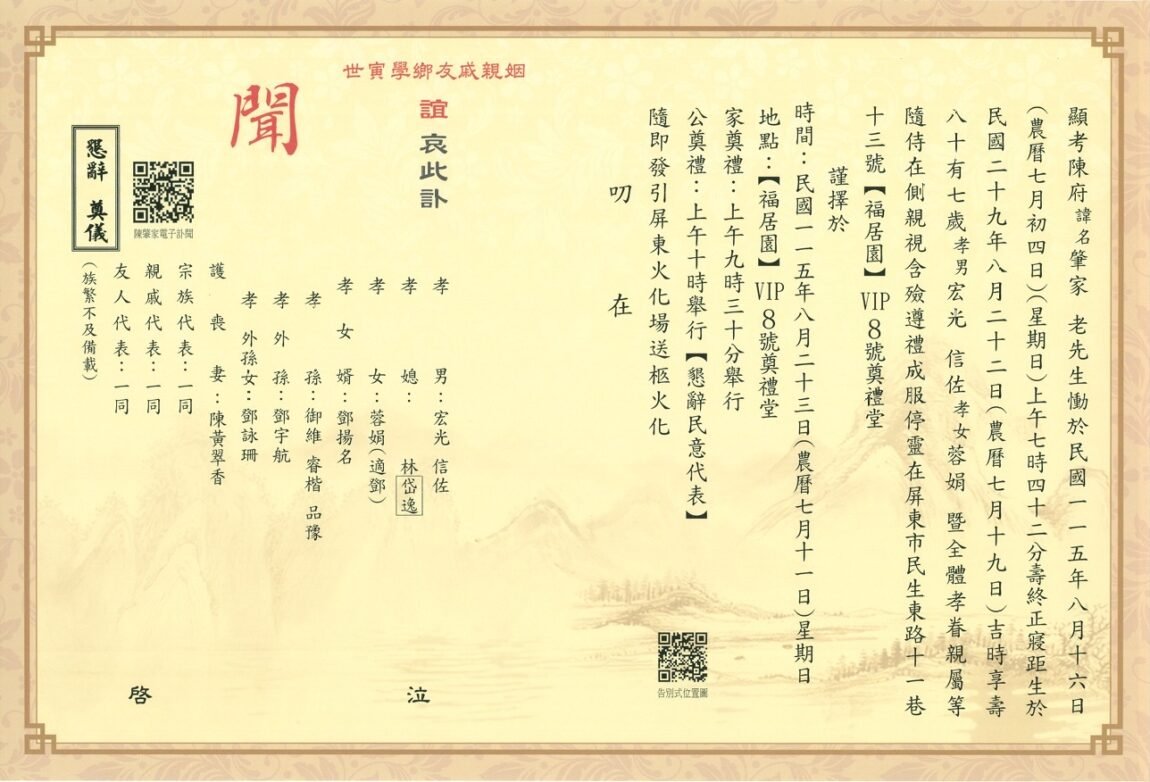 顯考陳府諱名肇家 老先生慟於民國一一五年八月十六日
(農曆七月初四日)(星期日)上午七時四十二分壽終正寢距生於
民國二十九年八月二十二日(農曆七月十九日)吉時享壽
八十有七歲孝男宏光 信佐孝女蓉娟 暨全體孝眷親屬等
隨侍在側親視含殮遵禮成服停靈在屏東市民生東路十一巷
十三號【福居園】VIP8號奠禮堂
謹擇於
時間：民國一一五年八月二十三日(農曆七月十一日)星期日
地點：【福居園】VIP8號奠禮堂
家奠禮：上午九時三十分舉行
公奠禮：上午十時舉行【懇辭民意代表】
隨即發引屏東火化場送柩火化
叨 在
告別式位置圖
姻親戚友鄉學寅世
誼哀此訃
聞
孝 男：宏光 信佐
孝 媳：林岱逸
孝 女：蓉娟(適鄧)
孝 女 婿：鄧揚名
孝 孫：御維 睿楷 品豫
孝 外 孫：鄧宇航
孝 外孫女：鄧詠珊
護 喪 妻：陳黃翠香
宗族代表：一同
親戚代表：一同
友人代表：一同
(族繁不及備載)
泣
啓
陳肇家電子訃聞
懇辭 奠儀